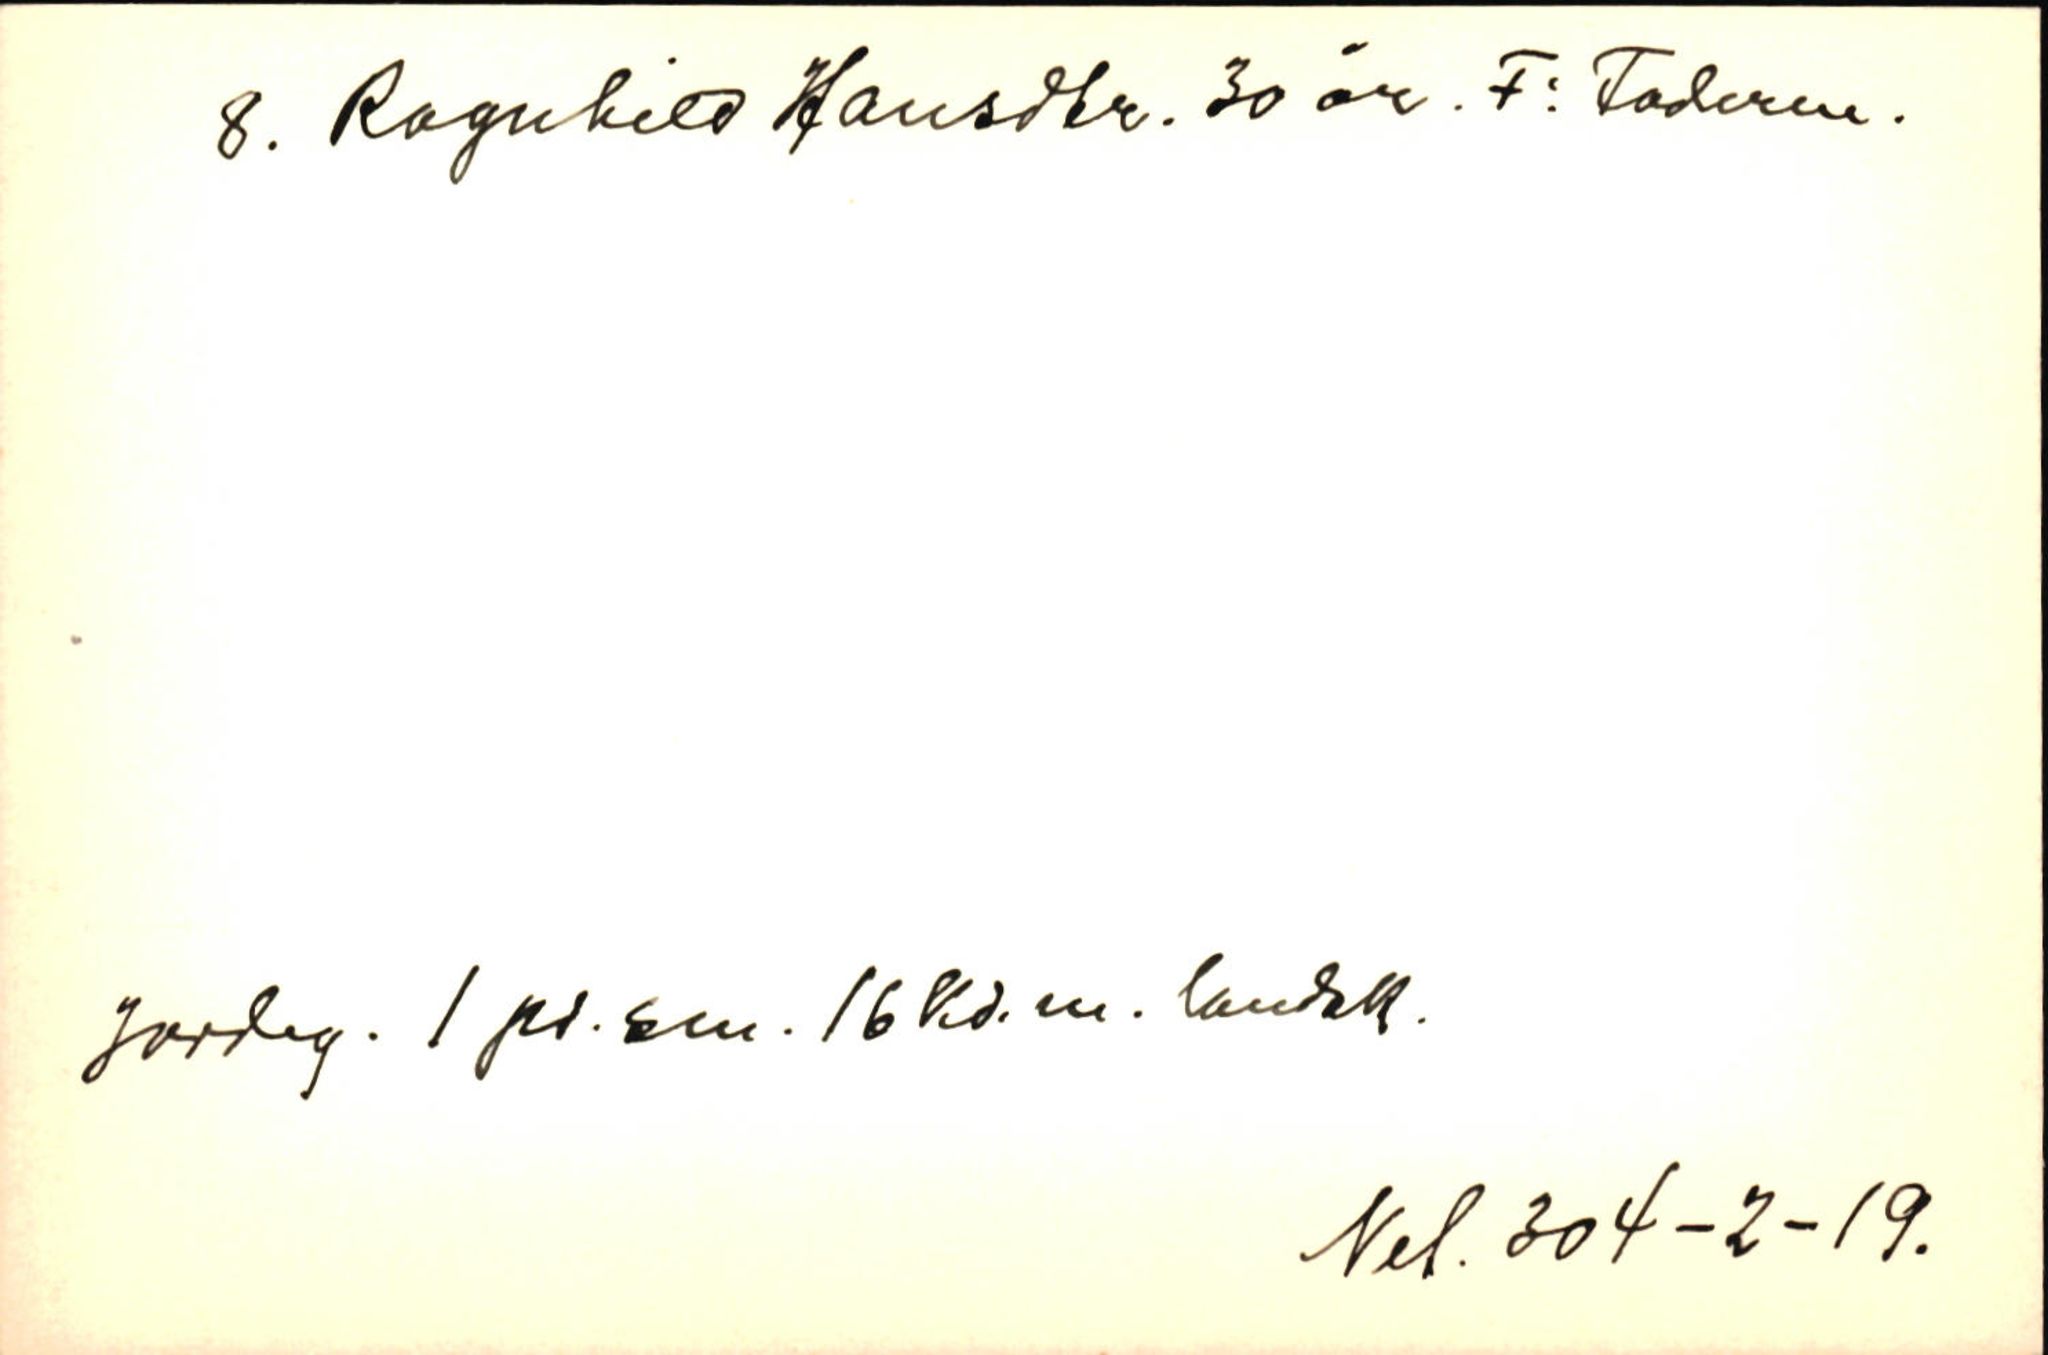 8. Ragnhild Hansdtr. 30 år. F: Faderen.
Jordeg. 1 pd. sm. 16 kd. m. landsk.
Nef. 304-2-19.